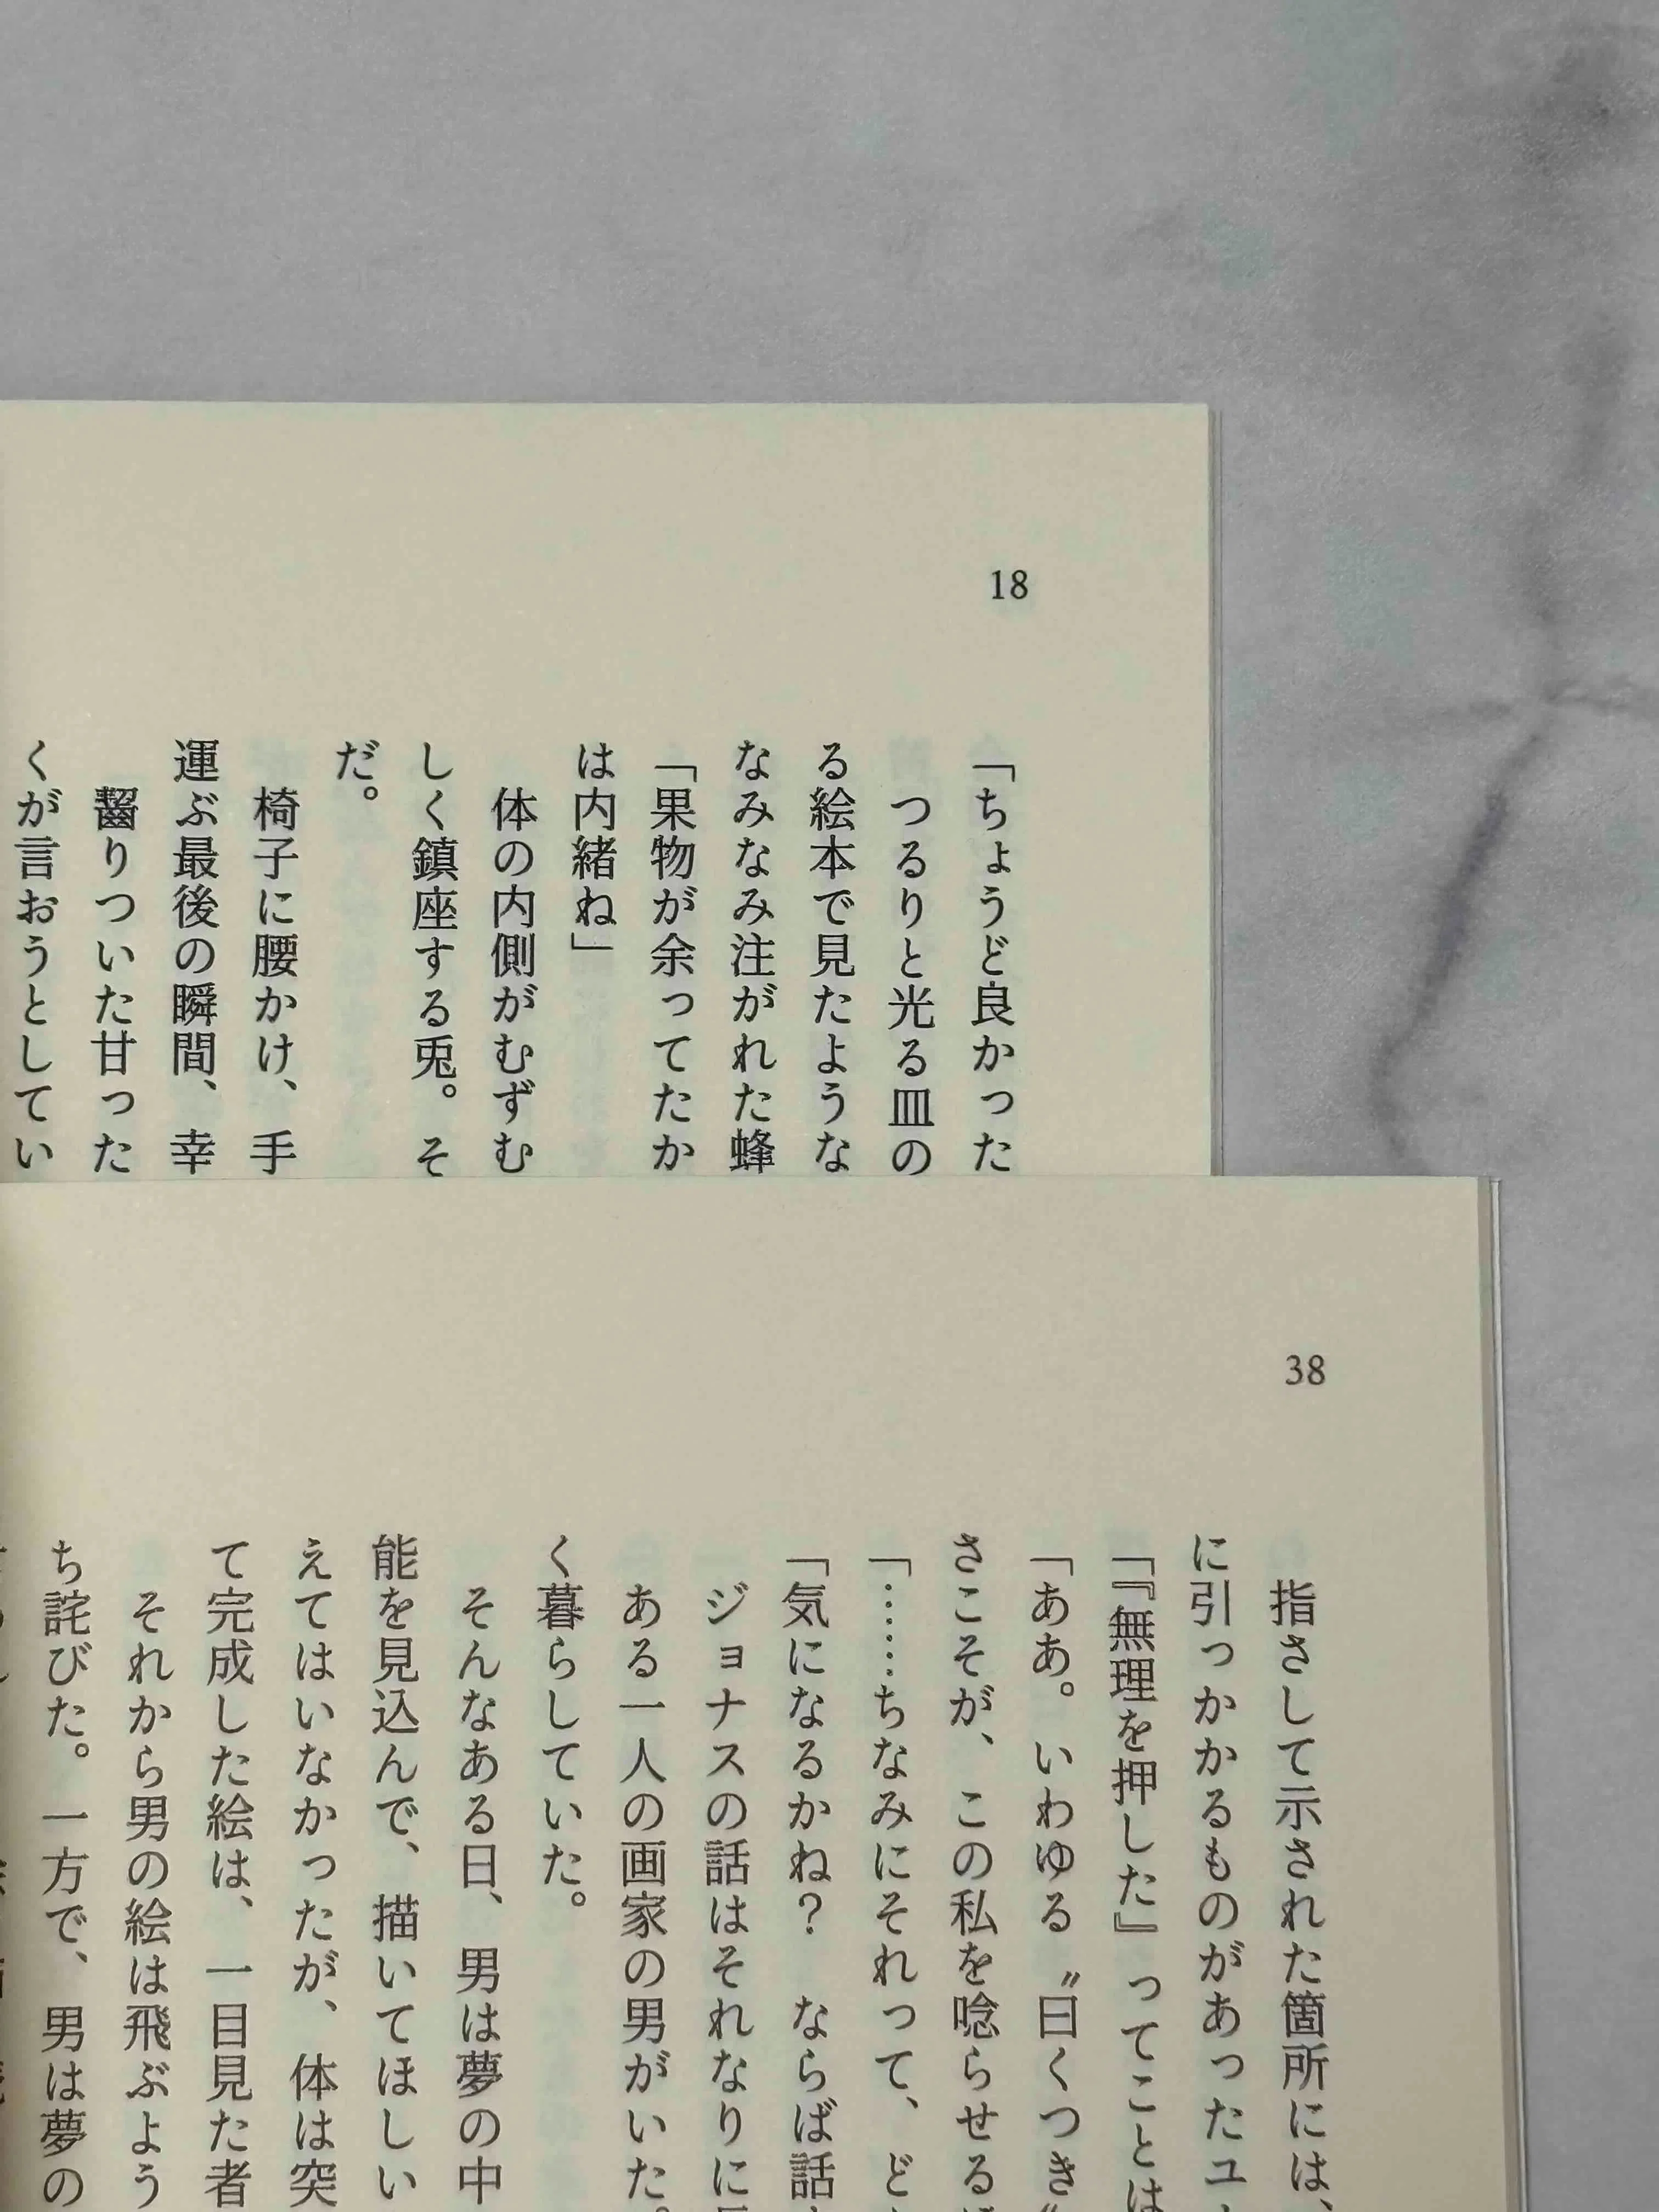 18
「ちょうど良かった
つるりと光る皿の
る絵本で見たような
なみなみ注がれた蜂
「果物が余ってたか
は内緒ね」
体の内側がむずむ
しく鎮座する兎。そ
だ。
椅子に腰かけ、手
運ぶ最後の瞬間、幸
齧りついた甘った
くが言おうとしてい
38
指さして示された箇所には、
に引っかかるものがあったユ
「『無理を押した』ってことは
「ああ。いわゆる〝曰くつき〟
さこそが、この私を唸らせる
「……ちなみにそれって、ど
「気になるかね？　ならば話
ジョナスの話はそれなりに
ある一人の画家の男がいた。
く暮らしていた。
そんなある日、男は夢の中
能を見込んで、描いてほしい
えてはいなかったが、体は突
て完成した絵は、一目見た者
それから男の絵は飛ぶよう
ち詫びた。一方で、男は夢の